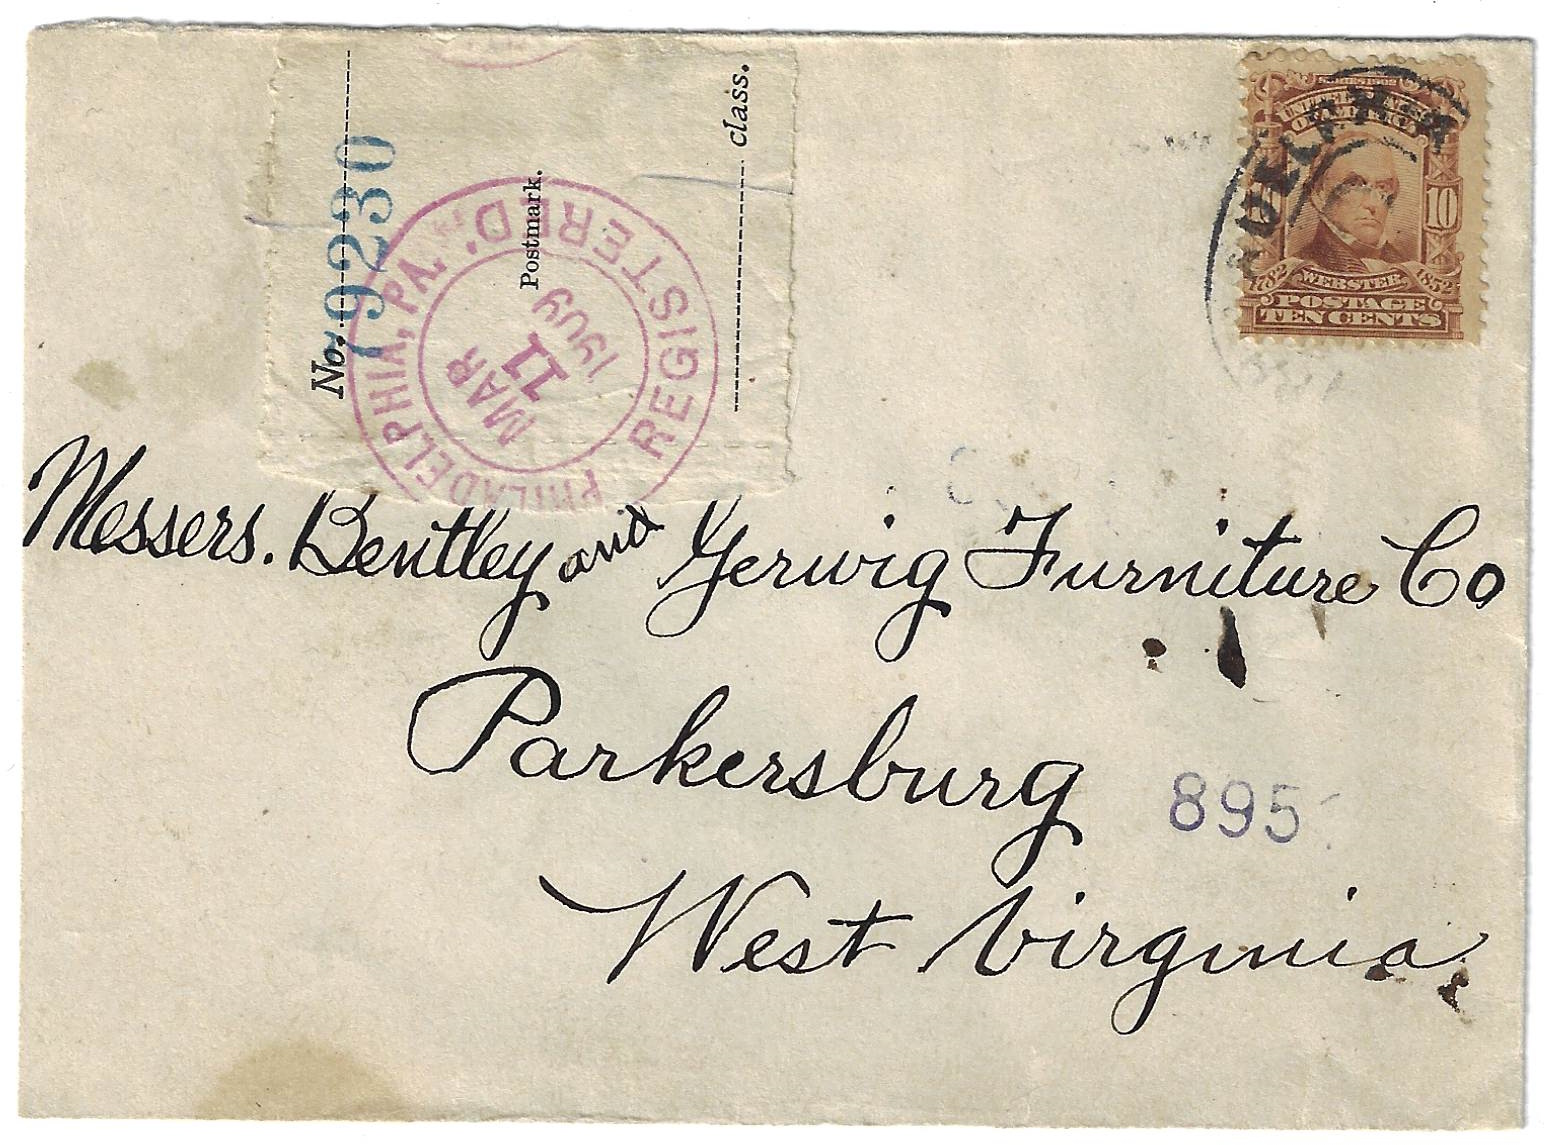 No. 79230
Postmark.
class.
PHILADELPHIA, PA.
REGISTERED.
MAR
11
1909
SERIES 1902
UNITED STATES
OF AMERICA
10
1782 WEBSTER 1852
POSTAGE
TEN CENTS
Messers. Bentley and Gerwig Furniture Co
Parkersburg
895
West Virginia